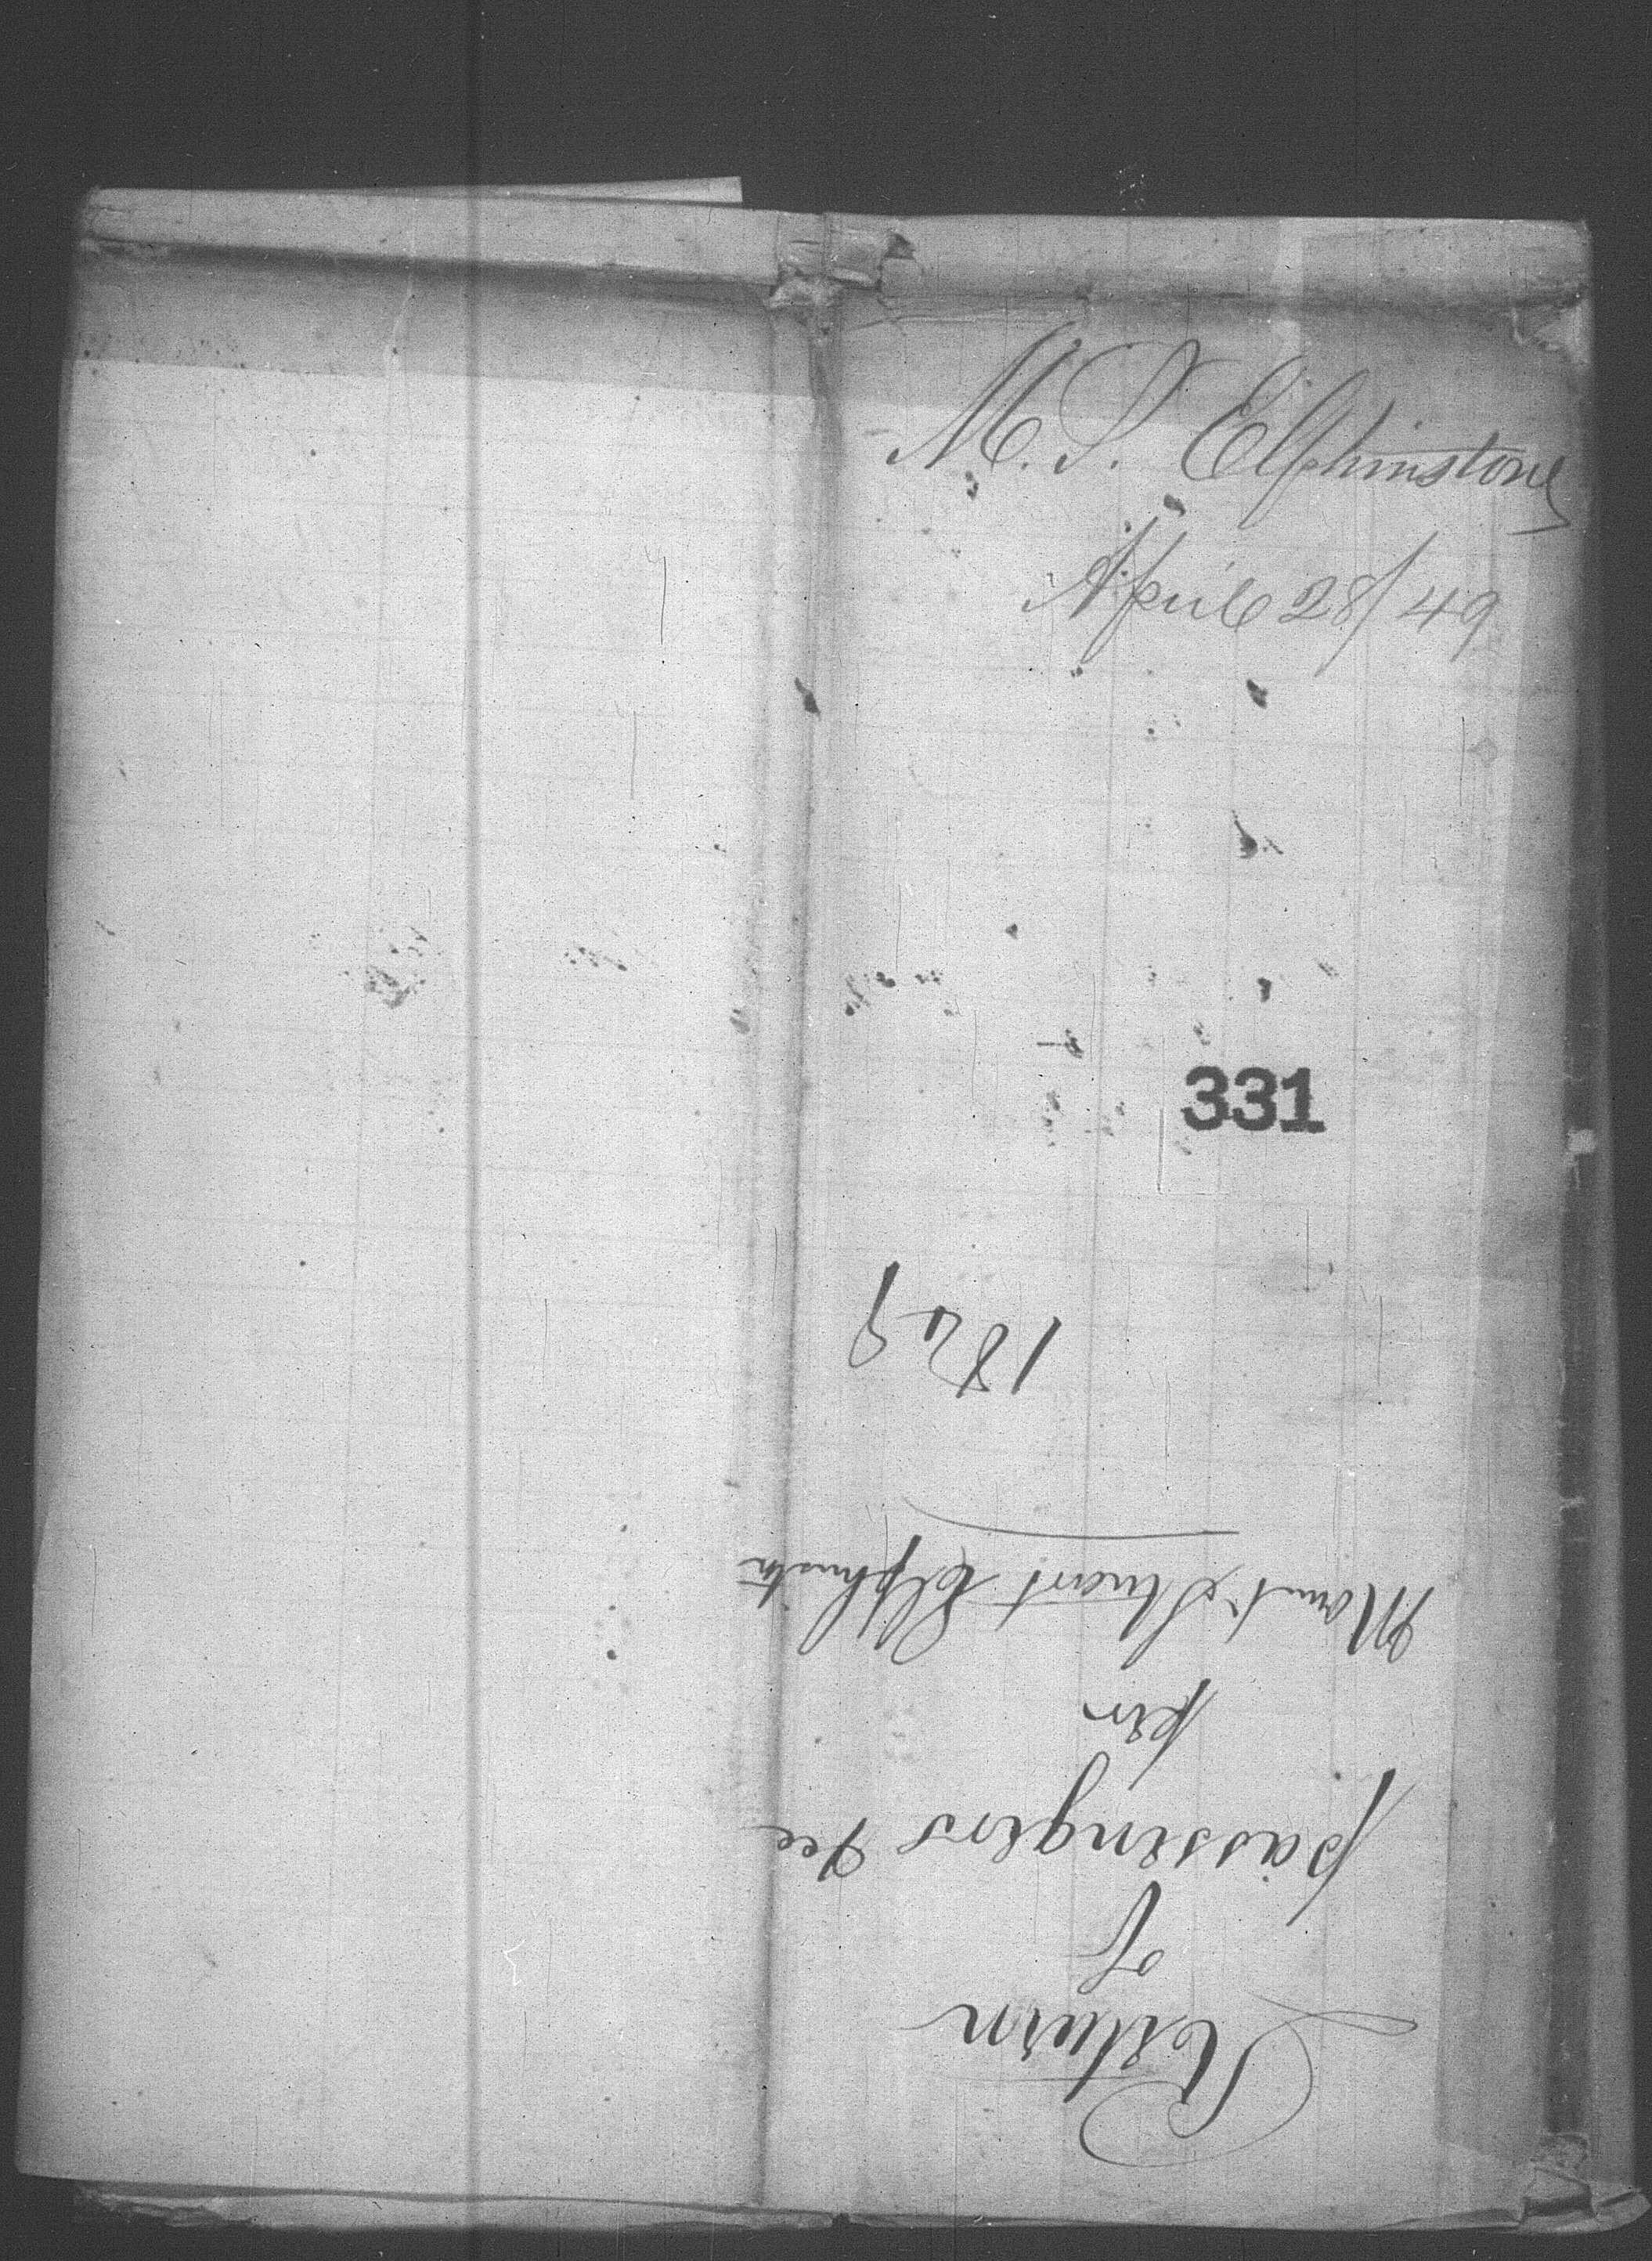 M. S. Elphinstone
April 28/49
331
Return
of
passengers Fee
per
Mount Stuart Elphinsto
1849